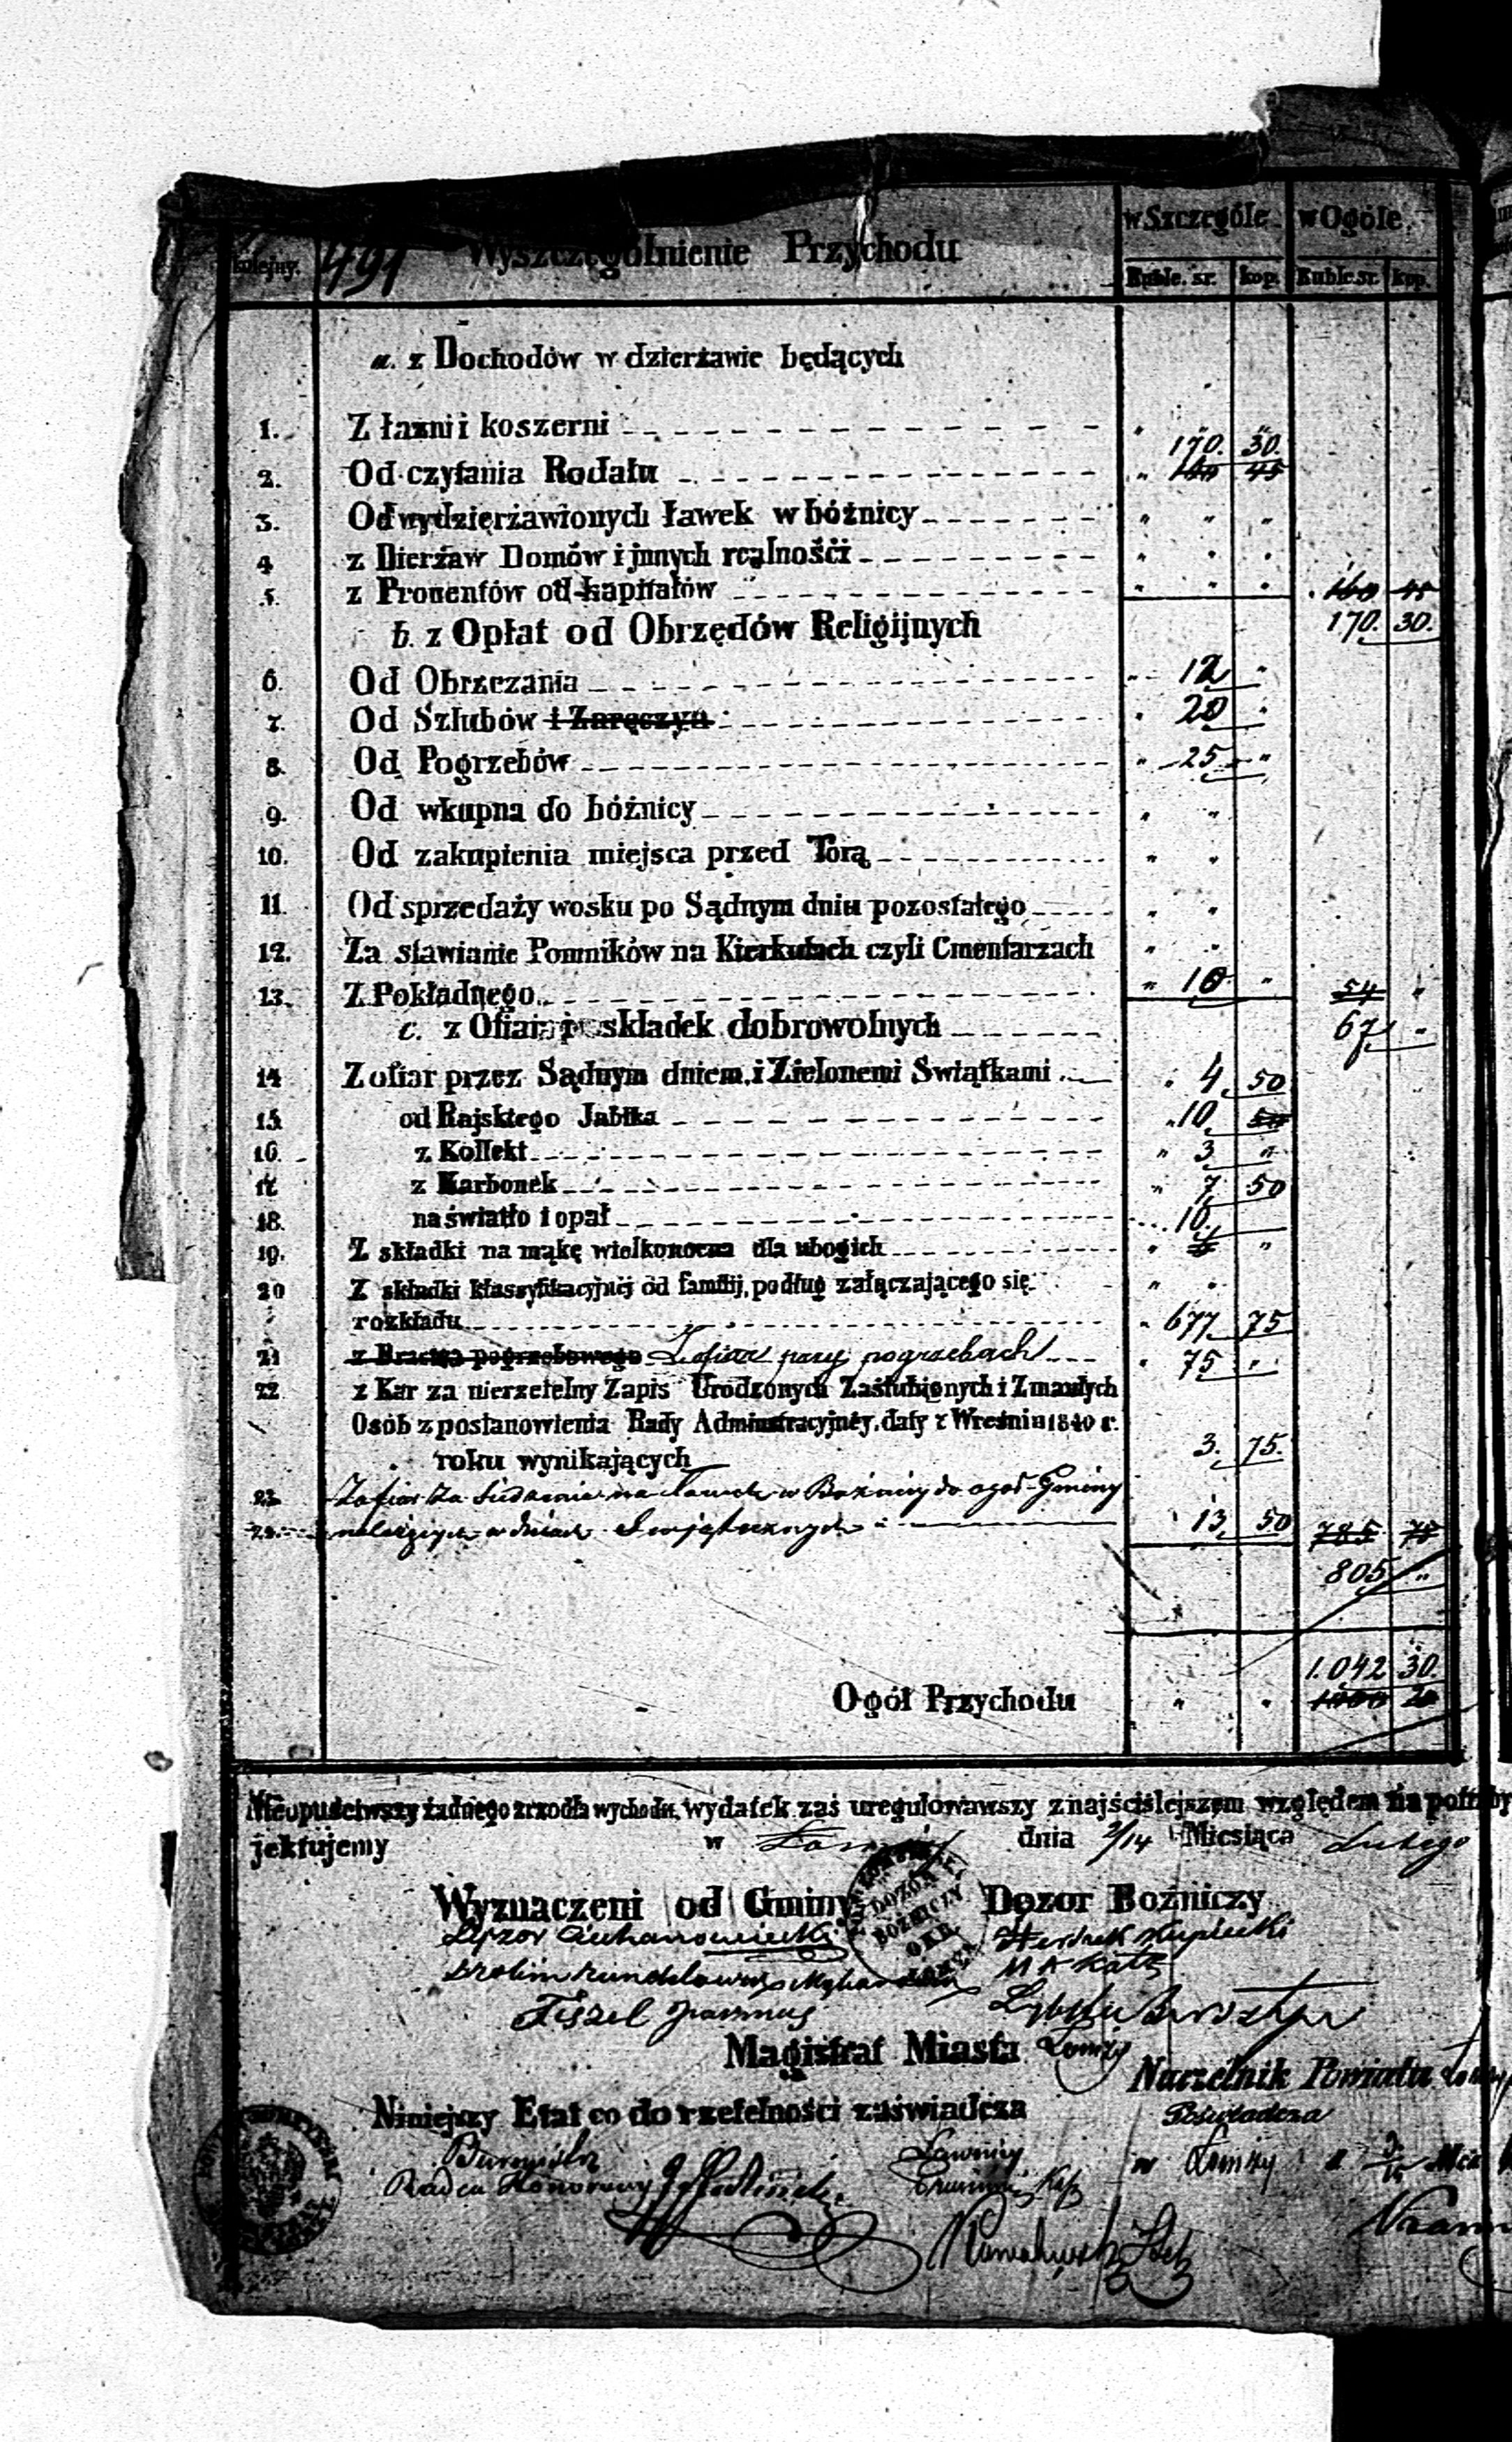 kolejny. 491 Wyszczególnienie Przychodu w Szczególe w Ogóle.
Ruble. sr. kop. Ruble.sr. kop.
a. z Dochodów w dzierżawie będących
1. Z łaźni i koszerni " "
2. Od czytania Rodału 170. 30.
" 160 45
3. Od wydzierżawionych ławek w bóżnicy " " "
4 z Dierżaw Domów i jnnych realnośći " " "
5. z Prouentów od kapitałów " " " 160 45
b. z Opłat od Obrzędów Religijnych 170. 30.
6. Od Obrzezania " 12 "
7. Od Szlubów i Zaręczyn " 20 "
8. Od Pogrzebów " 25 "
9. Od wkupna do bóżnicy " "
10. Od zakupienia miejsca przed Torą " "
11. Od sprzedaży wosku po Sądnym dniu pozostałego " "
12. Za stawianie Pomników na Kierkutach czyli Cmentarzach " "
13. Z Pokładnego " 10 " 54 "
c. z Ofiar i składek dobrowolnych 67 "
14 Z ofiar przez Sądnym dniem i Zielonemi Swiątkami " 4 50
15 od Rajskiego Jabłka " 10 50
16. z Kollekt " 3 "
17 z Karbonek " 7 50
18. na światło i opał 10.
19. Z składki na mąkę wielkonocna dla ubogich " "
20 Z składki klassyfikacyjnéj od familij, podług załączającego się " "
rozkładu " 677 75
21 z Bractwa pogrzebowego Z ofiar przy pogrzebach " 75 "
22 z Kar za nierzetelny Zapis Urodzonych Zaślubionych i Zmarłych
Osób z postanowienia Rady Administracyjnéy, daty z Wreśnia 1840 r.
roku wynikających 3. 75.
23 Z ofiar za Siedzenia na Ławach w Bożnicy do ogół Gminy
należących w dniach Swiątecznych " 13 50 785 75
805 "
1.042 30.
Ogół Przychodu " " 1000 20
Nieopuściwszy żadnego zrzodła wychodu, wydatek zaś uregulowawszy z najściślejszym względem na potrzeby
jektujemy w Łomży dnia 2/14 Miesiąca Lutego
Wyznaczeni od Gminy Dozor Bożniczy
DOZÓR BOŻNICZY OKR. ŁOMŻA
Leyzor Ciechanowiecki Herszek Kupiecki
M K Katz
Fiszel
Magistrat Miasta Łomży
Naczelnik Powiatu
Niniejszy Etat co do rzetelności zaświadcza Poświadcza
Burmistrz Ławnicy w Łomży d.
Radca Honorowy